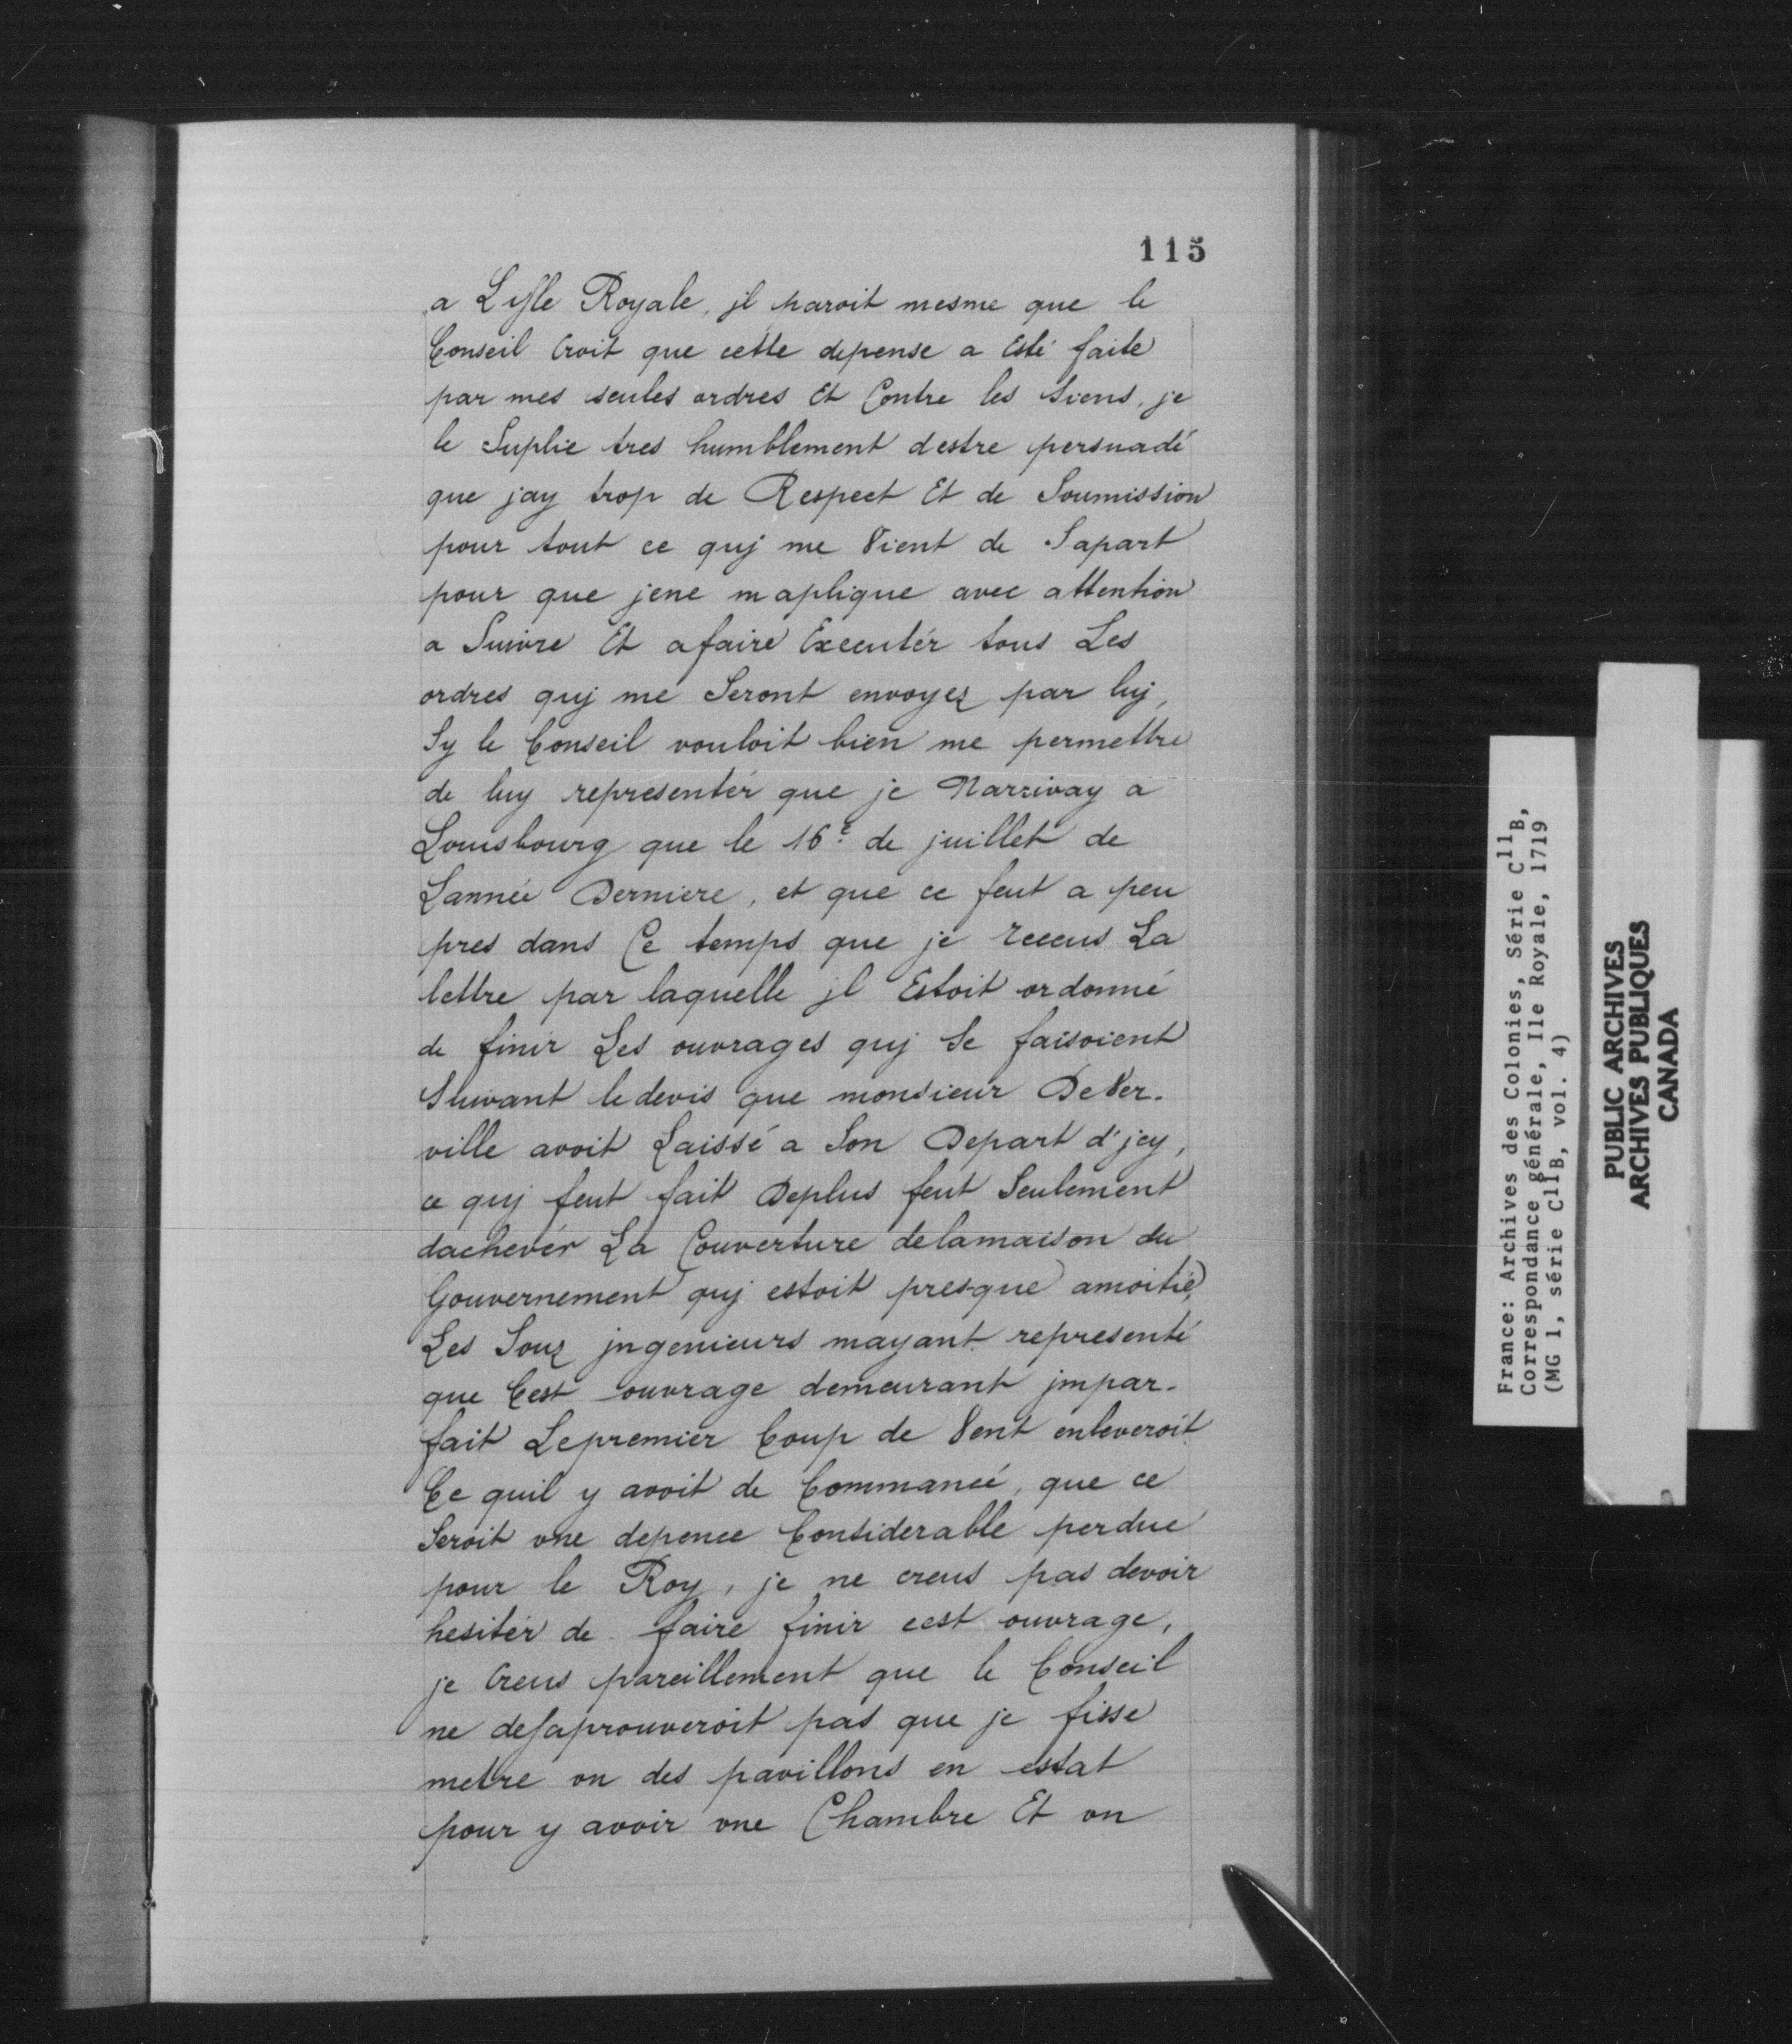 115
a Lisle Royale, jl paroit mesme que le
Conseil Croit que cette depense a Esté faite
par mes seules ordres Et Contre les siens, je
le Suplie tres humblement destre persuadé
que jay trop de Respect Et de Soumission
pour tout ce quj me Vient de Sapart
pour que jene maplique avec attention
a Suivre Et afaire Executér tous Les
ordres quj me Seront envoyez par luj,
Sy le Conseil vouloit bien me permettre
de luy representér que je Narrivay a
Louisbourg que le 16e de juillet de
Lannée Derniere, et que ce feut a peu
pres dans Ce temps que je receus La
lettre par laquelle jl Estoit ordonné
de finir Les ouvrages quj Se faisoient
Suivant ledevis que monsieur DeVer-
ville avoit Laissé a Son Depart d'jcy,
ce quj feut fait Deplus feut Seulement
dachevér La Couverture delamaison du
Gouvernement quj estoit presque amoitié,
Les Souz jngenieurs mayant representé
que Cest ouvrage demeurant jmpar-
fait Lepremier Coup de Vent enleveroit
Ce quil y avoit de Commancé, que ce
Seroit vne depence Considerable perdue
pour le Roy, je ne creus pas devoir
hesitér de faire finir cest ouvrage,
je Creus pareillement que le Conseil
ne desaprouveroit pas que je fisse
metre vn des pavillons en estat
pour y avoir vne Chambre Et vn
France: Archives des Colonies, Série C11B,
Correspondance générale, Ile Royale, 1719
(MG 1, série C11B, vol. 4)
PUBLIC ARCHIVES
ARCHIVES PUBLIQUES
CANADA